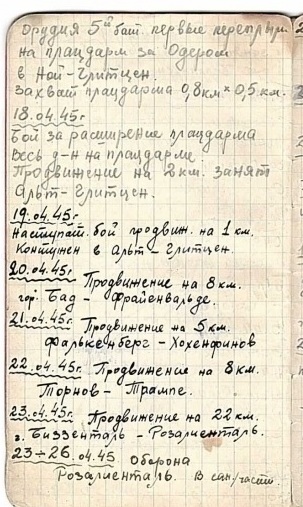 Орудия 5й бат. первые перепр.
на плацдарм за Одером
в Ной-Глитцен.
Захват плацдарма 0,8км × 0,5 км.
18.04.45г
Бой за расширение плацдарма
Весь д-н на плацдарме.
Продвижение на 2км. занят
Альт-Глитцен.
19.04.45г.
Наступат. бой продвиж. на 1 км.
Контужен в Альт-Глитцен.
20.04.45г. Продвижение на 8 км.
гор. Бад - Фрайенвальде.
21.04.45г. Продвижение на 5 км.
Фалькенберг - Хохенфинов
22.04.45г. Продвижение на 8км.
Торнов - Трампе.
23.04.45г. Продвижение на 22 км.
г. Биззенталь - Розалиенталь.
23÷26.04.45 Оборона
Розалиенталь. В сан/части.